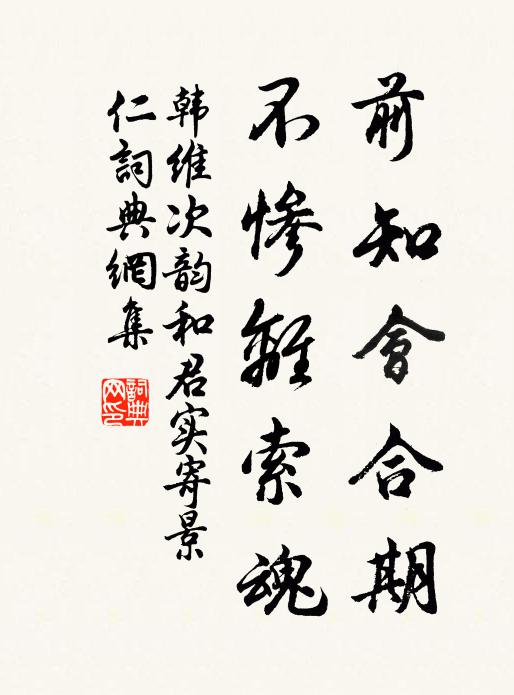 前知會合期
不慘離索魂
韩維次韵和君实寄景
仁詞典網集
詞典
网印